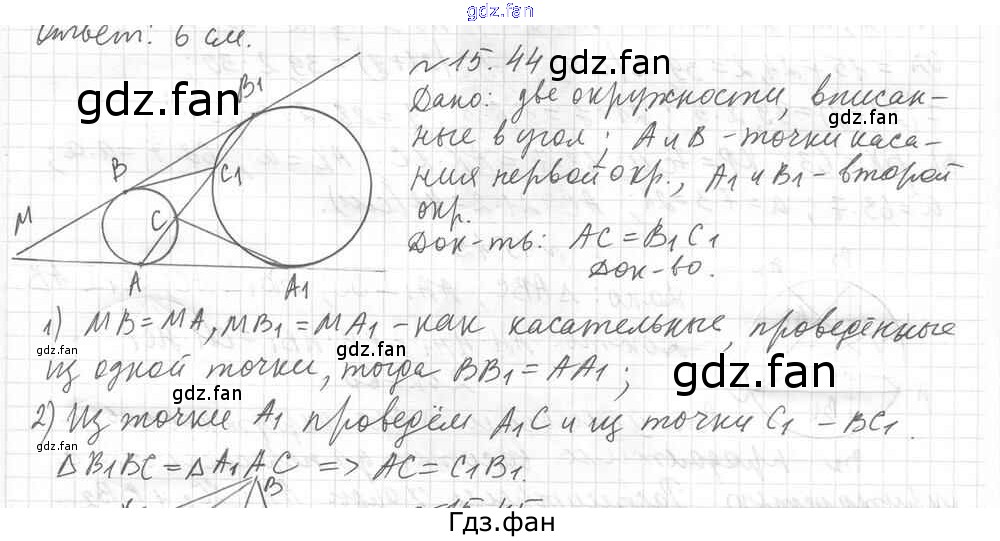 gdz.fan
Ответ: 6 см.
N 15.44
gdz.fan
gdz.fan
Дано: две окружности, вписан-
gdz.fan
ные в угол; A и B - точки каса-
ния первой окр., A1 и B1 - второй
окр.
Док-ть: AC = B1C1
Док-во.
B1
B
C1
M
C
A
A1
1) MB = MA, MB1 = MA1 - как касательные, проведённые
gdz.fan
gdz.fan
из одной точки, тогда BB1 = AA1;
gdz.fan
gdz.fan
2) Из точки A1 проведём A1C и из точки C1 - BC1.
gdz.fan
gdz.fan
△B1BC = △A1AC => AC = C1B1.
B
15.45
Гдз.фан